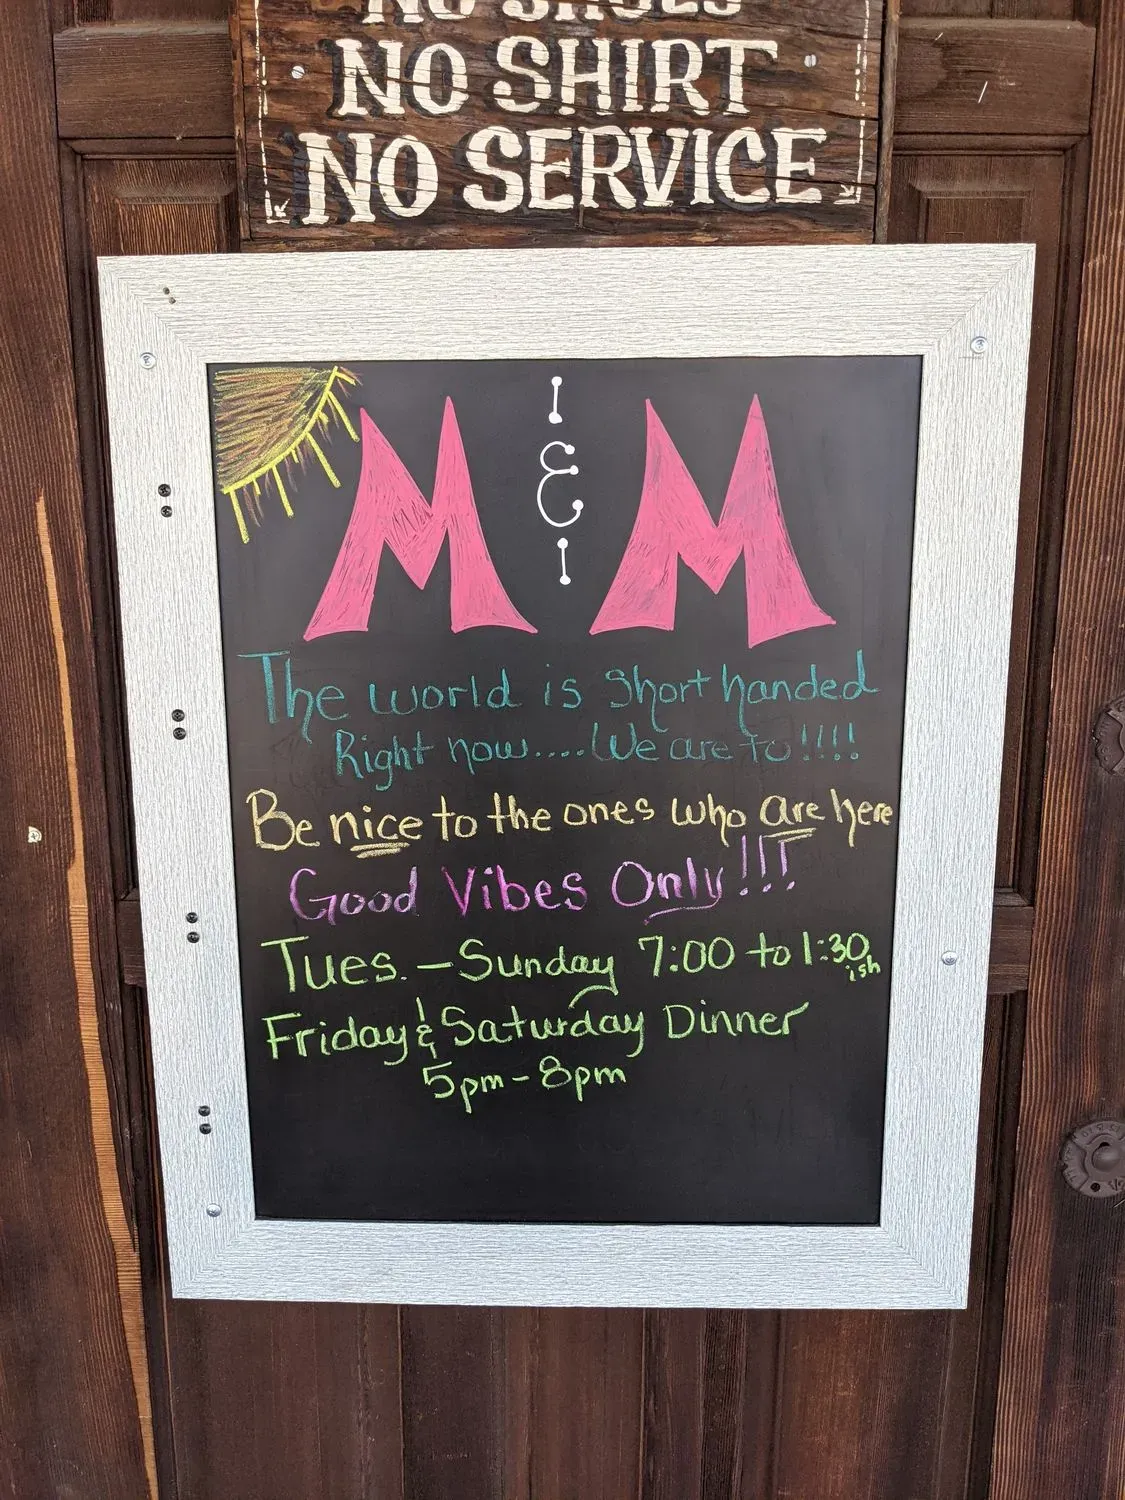 NO SHOES
NO SHIRT
NO SERVICE
M & M
The world is Short handed
Right now....We are to!!!!
Be nice to the ones who are here
Good Vibes Only!!!
Tues. – Sunday 7:00 to 1:30 ish
Friday & Saturday Dinner
5pm – 8pm